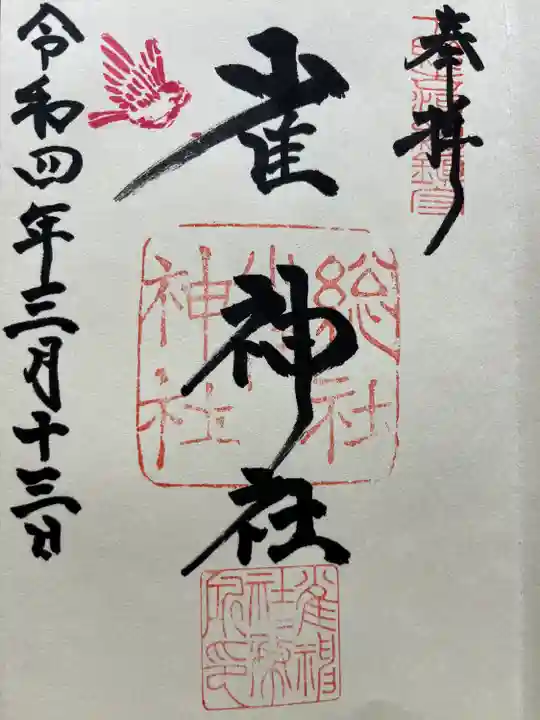 奉拝
雀神社
総社
雀
神社
雀神
社務
令和四年三月十三日